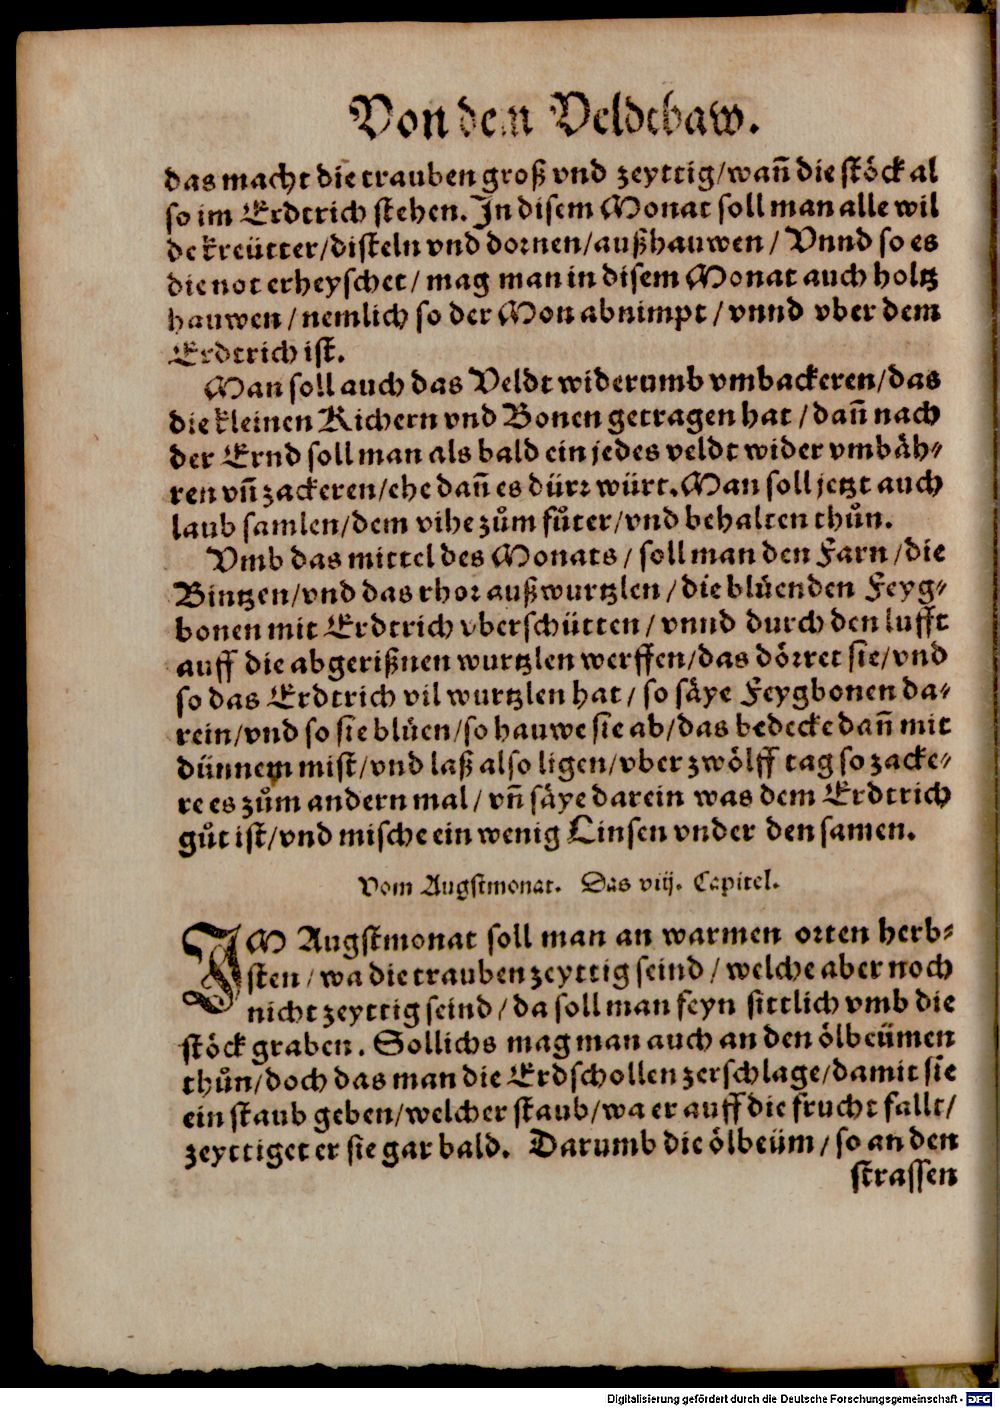 Von dem Veldtbaw.
das macht die trauben groß vnd zeyttig/wañ die stöck al
so im Erdtrich stehen. In disem Monat soll man alle wil
de kreütter/disteln vnd dornen/außhauwen/ Vnnd so es
die not erheyschet/ mag man in disem Monat auch holtz
hauwen/nemlich so der Mon abnimpt/vnnd vber dem
Erdtrich ist.
Man soll auch das Veldt widerumb vmbackeren/das
die kleinen Kichern vnd Bonen getragen hat/dañ nach
der Ernd soll man als bald ein jedes veldt wider vmbäh⸗
ren vñ zackeren/ehe dañ es dürr würt. Man soll jetzt auch
laub samlen/dem vihe zům fůter/vnd behalten thůn.
Vmb das mittel des Monats/ soll man den Farn/die
Bintzen/vnd das rhor außwurtzlen/die blüenden Feyg⸗
bonen mit Erdtrich vberschütten/vnnd durch den lufft
auff die abgerißnen wurtzlen werffen/das dörret sie/vnd
so das Erdtrich vil wurtzlen hat/ so säye Feygbonen da⸗
rein/vnd so sie blüen/so hauwe sie ab/das bedecke dañ mit
dünnem mist/vnd laß also ligen/vber zwölff tag so zacke⸗
re es zům andern mal/vñ säye darein was dem Erdtrich
gůt ist/vnd mische ein wenig Linsen vnder den samen.
Vom Augstmonat. Das viij. Capitel.
IM Augstmonat soll man an warmen orten herb⸗
sten/wa die trauben zeyttig seind/welche aber noch
nicht zeyttig seind/da soll man feyn sittlich vmb die
stöck graben. Sollichs mag man auch an den ölbeümen
thůn/doch das man die Erdschollen zerschlage/damit sie
ein staub geben/welcher staub/wa er auff die frucht fallt/
zeyttiget er sie gar bald. Darumb die ölbeüm/so an den
strassen
Digitalisierung gefördert durch die Deutsche Forschungsgemeinschaft - DFG